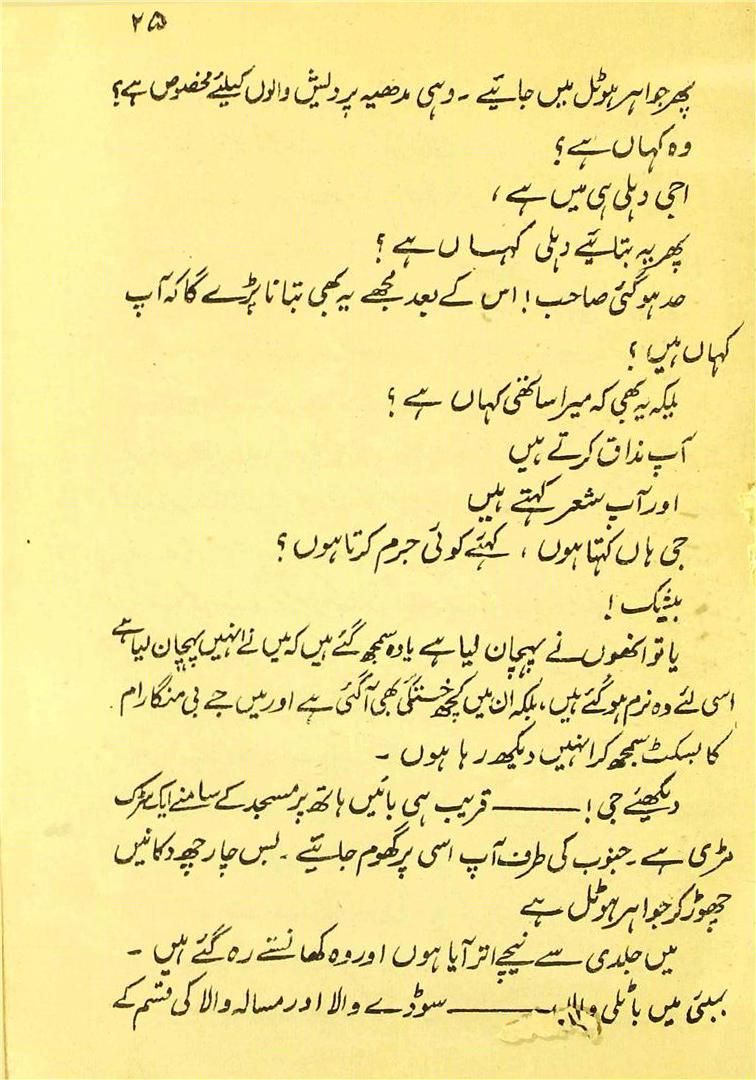 ۲۵
پھر جواہر ہوٹل میں جائیے ۔ وہی مدھیہ پردیش والوں کیلئے مخصوص ہے؟
وہ کہاں ہے؟
اجی دہلی ہی میں ہے ،
پھر یہ بتائیے دہلی کہاں ہے ؟
حد ہو گئی صاحب ! اس کے بعد مجھے یہ بھی بتانا پڑے گا کہ آپ
کہاں ہیں ؟
بلکہ یہ بھی کہ میرا ساتھی کہاں ہے ؟
آپ مذاق کرتے ہیں
اور آپ شعر کہتے ہیں
جی ہاں کہتا ہوں ، کہئے کوئی جرم کرتا ہوں ؟
بیشک !
یا تو انھوں نے پہچان لیا ہے یا وہ سمجھ گئے ہیں کہ میں نے انہیں پہچان لیا ہے
اسی لئے وہ نرم ہو گئے ہیں، بلکہ ان میں کچھ خستگی بھی آگئی ہے اور میں جے بی منگارام
کا بسکٹ سمجھ کر انہیں دیکھ رہا ہوں ۔
دیکھئے جی ! ——— قریب ہی بائیں ہاتھ پر مسجد کے سامنے ایک سڑک
مڑی ہے ۔ جنوب کی طرف آپ اسی پر گھوم جائیے ۔ بس چار چھ دکانیں
چھوڑ کر جواہر ہوٹل ہے
میں جلدی سے نیچے اتر آیا ہوں اور وہ کھانستے رہ گئے ہیں ۔
بمبئی میں باٹلی والا ——— سوڈے والا اور مسالہ والا کی قسم کے